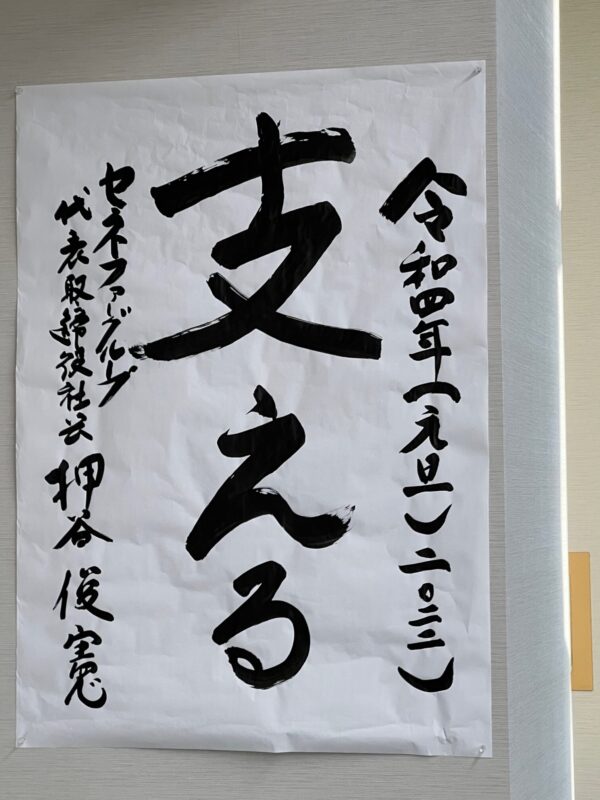 令和四年(元旦)二〇二二)
支える
セネファグループ
代表取締役社長 押谷 俊憲